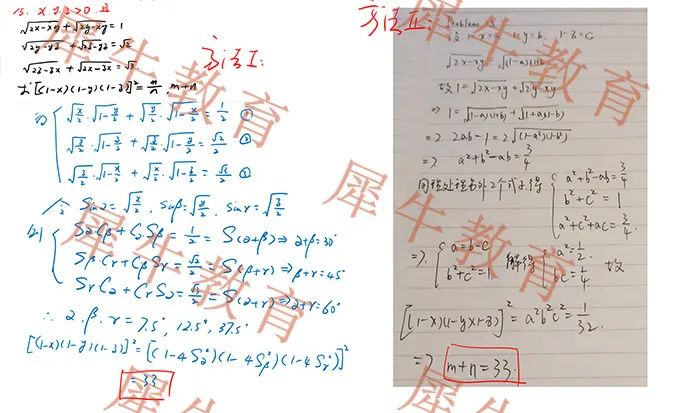 15. x.y.z>0.且
√2x-xy + √2y-xy = 1
√2y-yz + √2z-yz = √2
√2z-zx + √2x-zx = √3
求[(1-x)(1-y)(1-z)]²=m/n, m+n
方法I:
√x/2·√1-y/2 + √y/2·√1-x/2 = 1/2 ①
√y/2·√1-z/2 + √z/2·√1-y/2 = √2/2 ②
√z/2·√1-x/2 + √x/2·√1-z/2 = √3/2 ③
令 Sinα=√x/2, Sinβ=√y/2, Sinγ=√z/2
则 SαCβ+CαSβ=1/2=S(α+β)⇒α+β=30°
SβCγ+CβSγ=√2/2=S(β+γ)⇒β+γ=45°
SγCα+CγSα=√3/2=S(α+γ)⇒α+γ=60°
∴ α.β.γ=7.5°, 12.5°, 37.5°
[(1-x)(1-y)(1-z)]²=[(1-4Sα²)(1-4Sβ²)(1-4Sγ²)]²
=33
方法II:
Problems
1-x=a 1-y=b, 1-z=C
√2x-xy √(1-a)(1+b)
故1=√2x-xy+√2y-xy
⇒ 1=√(1-a)(1+b)+√(1+a)(1-b)
⇒ 2ab-1=2√(1-a²)(1-b²)
⇒ a²+b²-ab=3/4
同理处理另外2个式子.得
a²+b²-ab=3/4
b²+c²=1
a²+c²+ac=3/4.
⇒ a=b-c
b²+c²=1 解得 a²=1/2. bc=1/4. 故
[(1-x)(1-y)(1-z)]²=a²b²c²=1/32.
⇒ m+n=33.
犀牛教育
犀牛教育
犀牛教育
犀牛教育